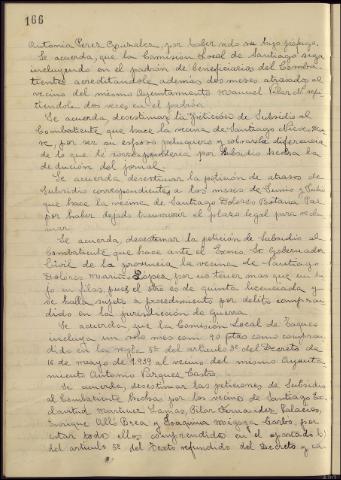 166
Antonia Perez Gonzalez, por haber sido su hijo profugo.
Se acuerda, que la Comision Local de Santiago siga
incluyendo en el padrón de beneficiarios del Comba-
tiente acreditandole además dos meses atrasado al
vecino del mismo Ayuntamiento Manuel Vilar
tiendole dos veces en el padrón
Se acuerda, desestimar la petición de Subsidio al
Combatiente que hace la vecina de Santiago Nieves
por ser su esposo peluquero y cobrarle diferencia
de lo que le correspondería por Subsidio hecha la
deducion del jornal
Se acuerda, desestimar la peticion de atrasos de
Subsidio correspondiente a los meses de Junio y Julio
que hace la vecina de Santiago Dolores Botana Paz
por haber dejado transcurrir el plazo legal para recla-
mar
Se acuerda, desestimar la petición de Subsidio al
Combatiente que hace ante el Excmo Sr. Gobernador
Civil de la provincia la vecina de Santiago
Dolores Mariño Lopez por no tener mas que un hi-
jo en filas, pues el otro es de quinta licenciada y
se halla sujeto a procedimiento por delito compren-
dido en la jurisdiccion de Guerra
Se acuerda que la Comisión Local de Toques
incluya un solo mes con 90 ptas como compren-
dido en la regla 5ª del articulo 3º del Decreto de
16 de mayo de 1939 al vecino del mismo Ayunta-
miento Antonio Vazquez Castro.
Se acuerda, desestimar las peticiones de Subsidio
al Combatiente hechas por los vecinos de Santiago
Martinez Lamas, Pilar Fernandez Palacios,
Enrique Brea y Joaquina Migoya Carbo, por
estar todo ellos comprendido en el apartado b)
del articulo 5º del Texto refundido del Decreto y